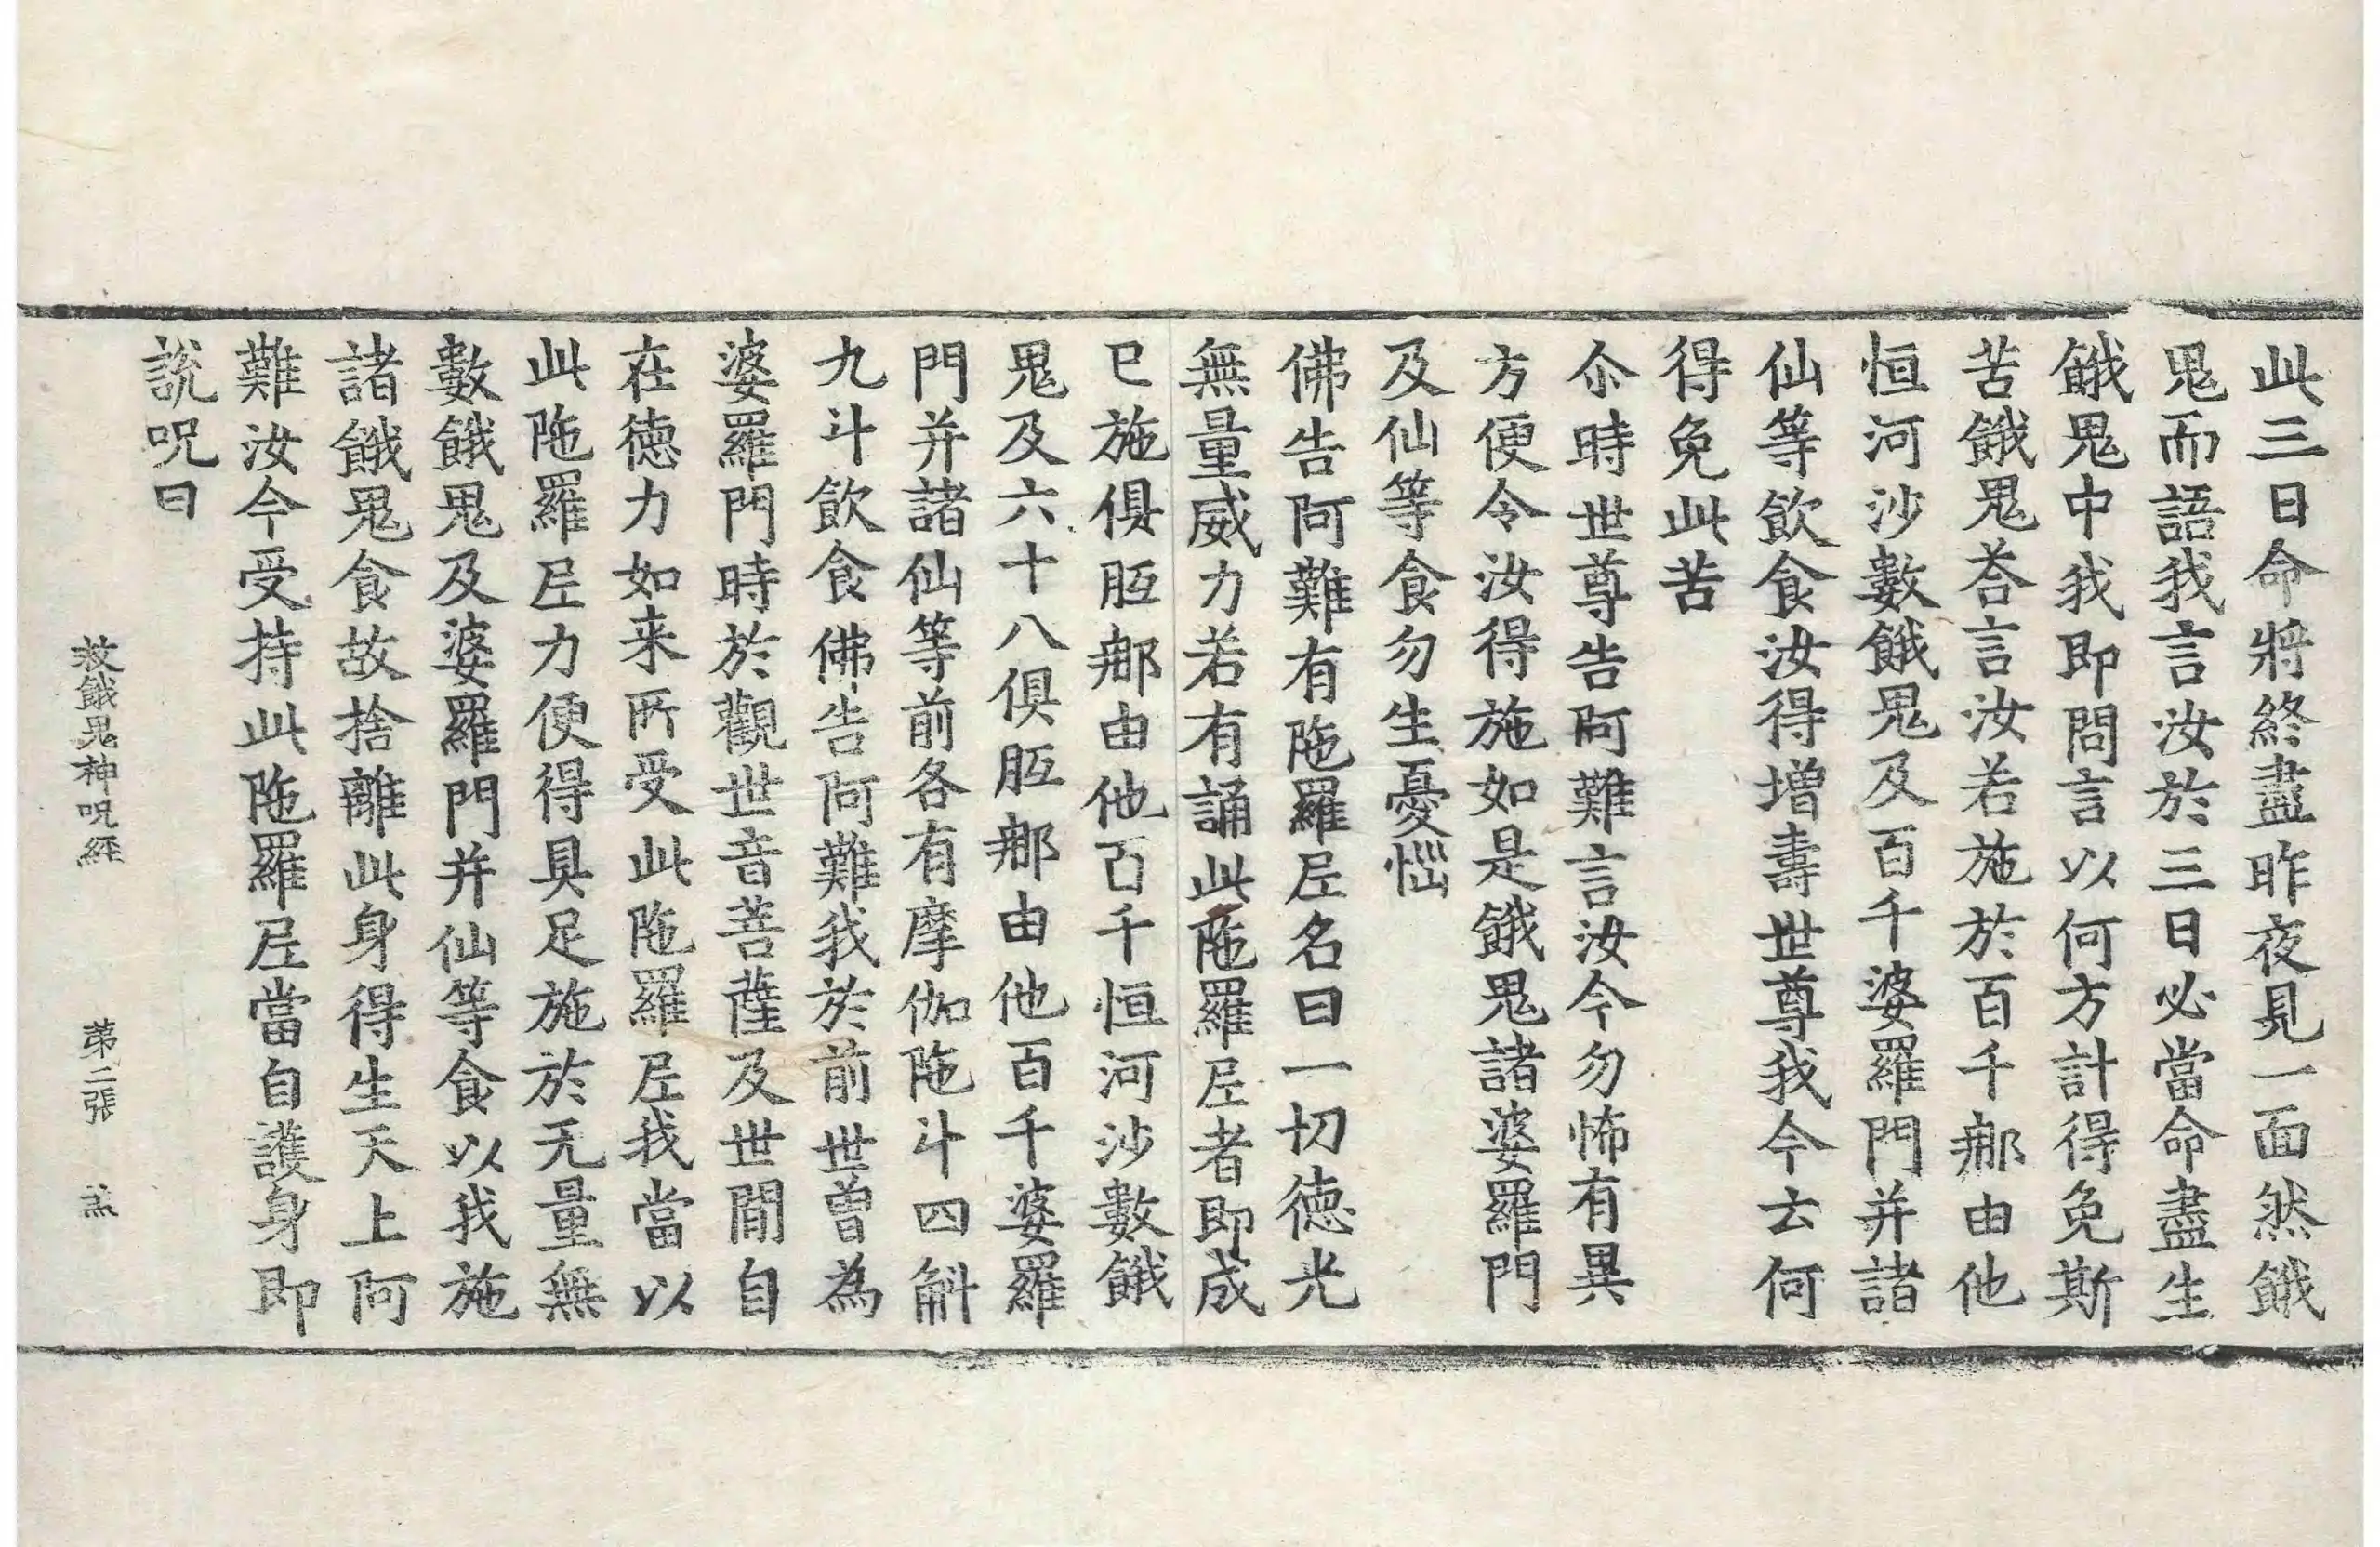 此三日命將終盡昨夜見一面然餓
鬼而語我言汝於三日必當命盡生
餓鬼中我即問言以何方計得免斯
苦餓鬼荅言汝若施於百千那由他
恒河沙數餓鬼及百千婆羅門并諸
仙等飲食汝得增壽世尊我今云何
得免此苦
尒時世尊告阿難言汝今勿怖有異
方便令汝得施如是餓鬼諸婆羅門
及仙等食勿生憂惱
佛告阿難有陁羅𡰱名曰一切德光
無量威力若有誦此陁羅𡰱者即成
已施俱胝那由他百千恒河沙數餓
鬼及六十八俱胝那由他百千婆羅
門并諸仙等前各有摩伽陁斗四斛
九斗飲食佛告阿難我於前世曾為
婆羅門時於觀世音菩薩及世間自
在德力如来所受此陁羅𡰱我當以
此陁羅𡰱力便得具足施於无量無
數餓鬼及婆羅門并仙等食以我施
諸餓鬼食故捨離此身得生天上阿
難汝今受持此陁羅𡰱當自護身即
說呪曰
救餓鬼神呪經 第二張 羔